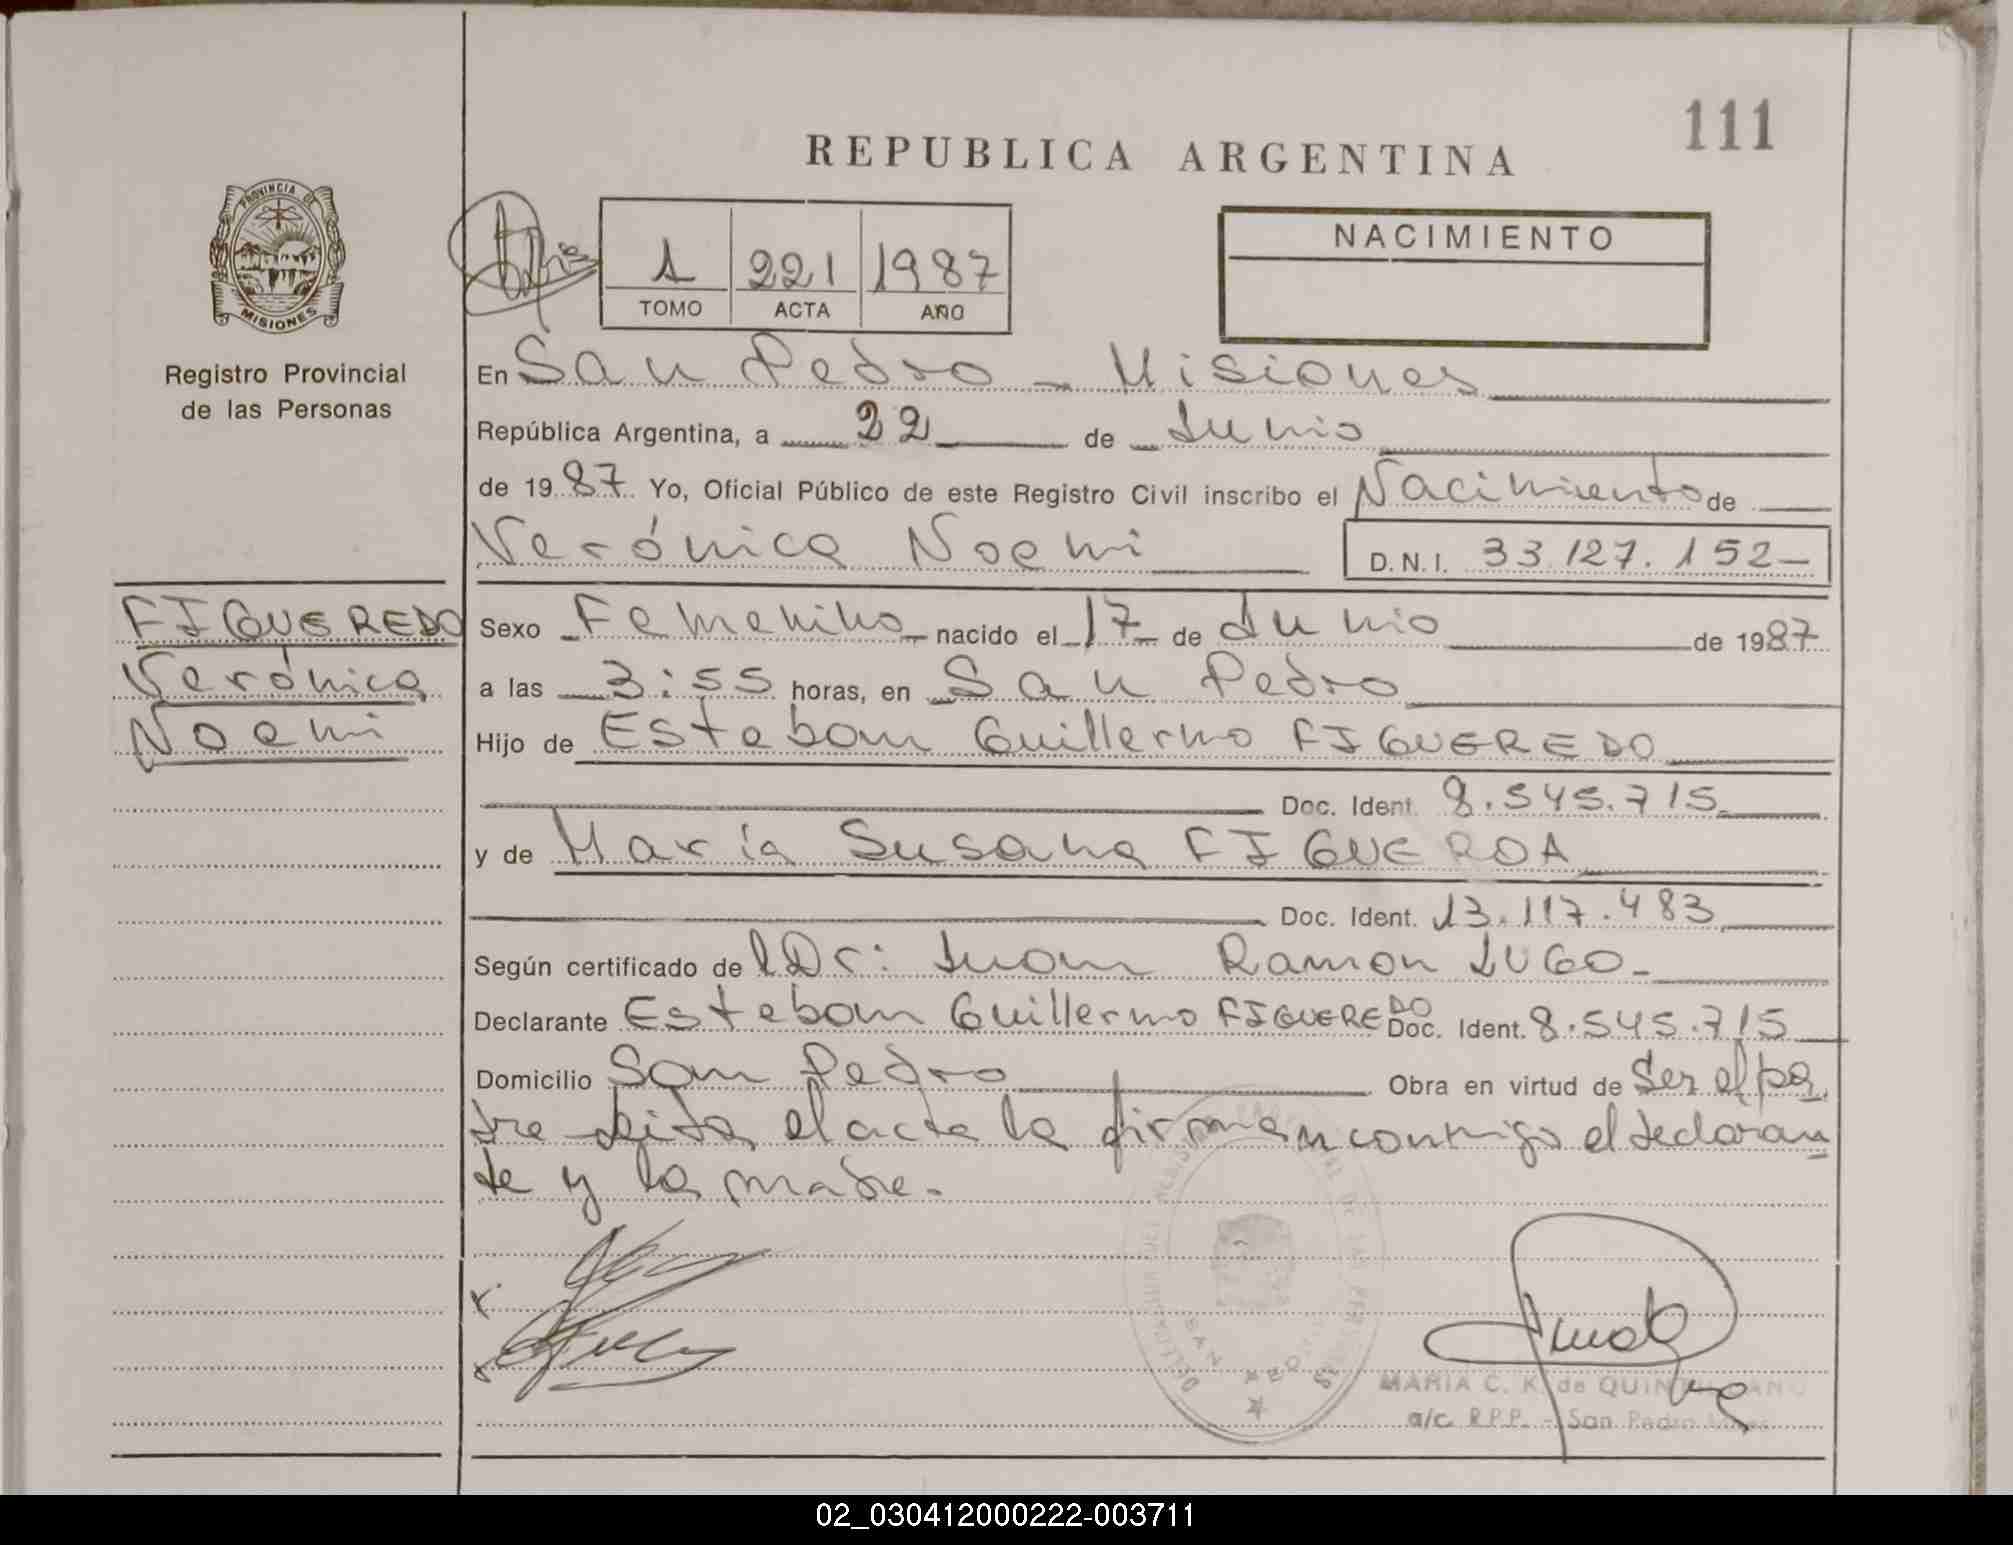 111
REPUBLICA ARGENTINA
PROVINCIA DE
MISIONES
Registro Provincial
de las Personas
1 221 1987
TOMO ACTA AÑO
NACIMIENTO
En San Pedro - Misiones
República Argentina, a 22 de Junio
de 1987 Yo, Oficial Público de este Registro Civil inscribo el Nacimiento de
Verónica Noemi
D.N.I. 33.127.152-
FIGUEREDO
Verónica
Noemi
Sexo Femenino nacido el 17 de Junio de 1987
a las 3:55 horas, en San Pedro
Hijo de Esteban Guillermo FIGUEREDO
Doc. Ident. 8.545.715
y de María Susana FIGUEROA
Doc. Ident. 13.117.483
Según certificado de Dr: Juan Ramon LUGO-
Declarante Esteban Guillermo FIGUEREDO Doc. Ident. 8.545.715
Domicilio San Pedro Obra en virtud de Ser el pa
dre leida el acta la firman conmigo el declaran
te y la madre.
SAN PEDRO
MARIA C. K. de QUINTILIANO
a/c. R.P.P. - San Pedro Mnes
02_030412000222-003711